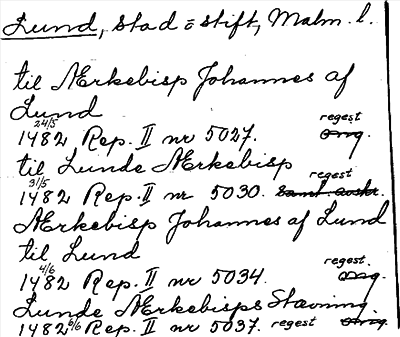 Lund, stad o stift, Malm. l.
til Ærkebisp Johannes af
Lund
24/5 regest
1482 Rep. II nr 5027. Orig.
til Lunde Ærkebisp
31/5 regest
1482 Rep. II nr 5030.
Ærkebisp Johannes af Lund
til Lund
4/6 regest.
1482 Rep. II nr 5034. Orig.
Lunde Ærkebisps Stævning.
1482 6/6 Rep. II nr 5037. regest Orig.